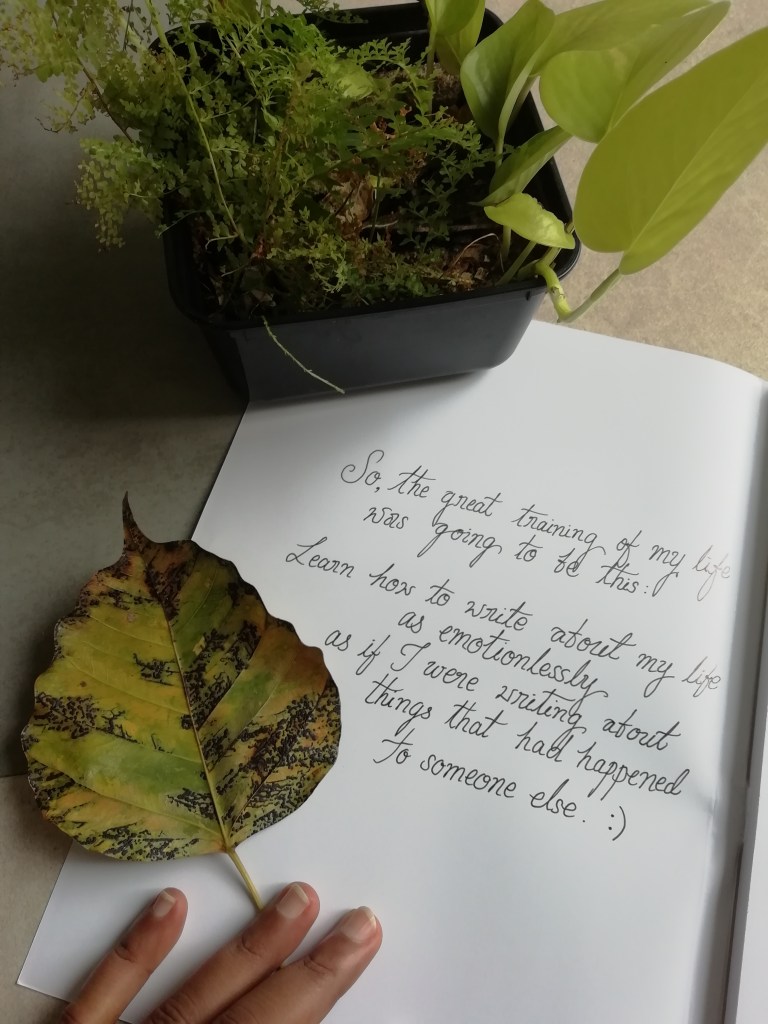 So, the great training of my life
was going to be this:
Learn how to write about my life
as emotionlessly
as if I were writing about
things that had happened
to someone else. :)